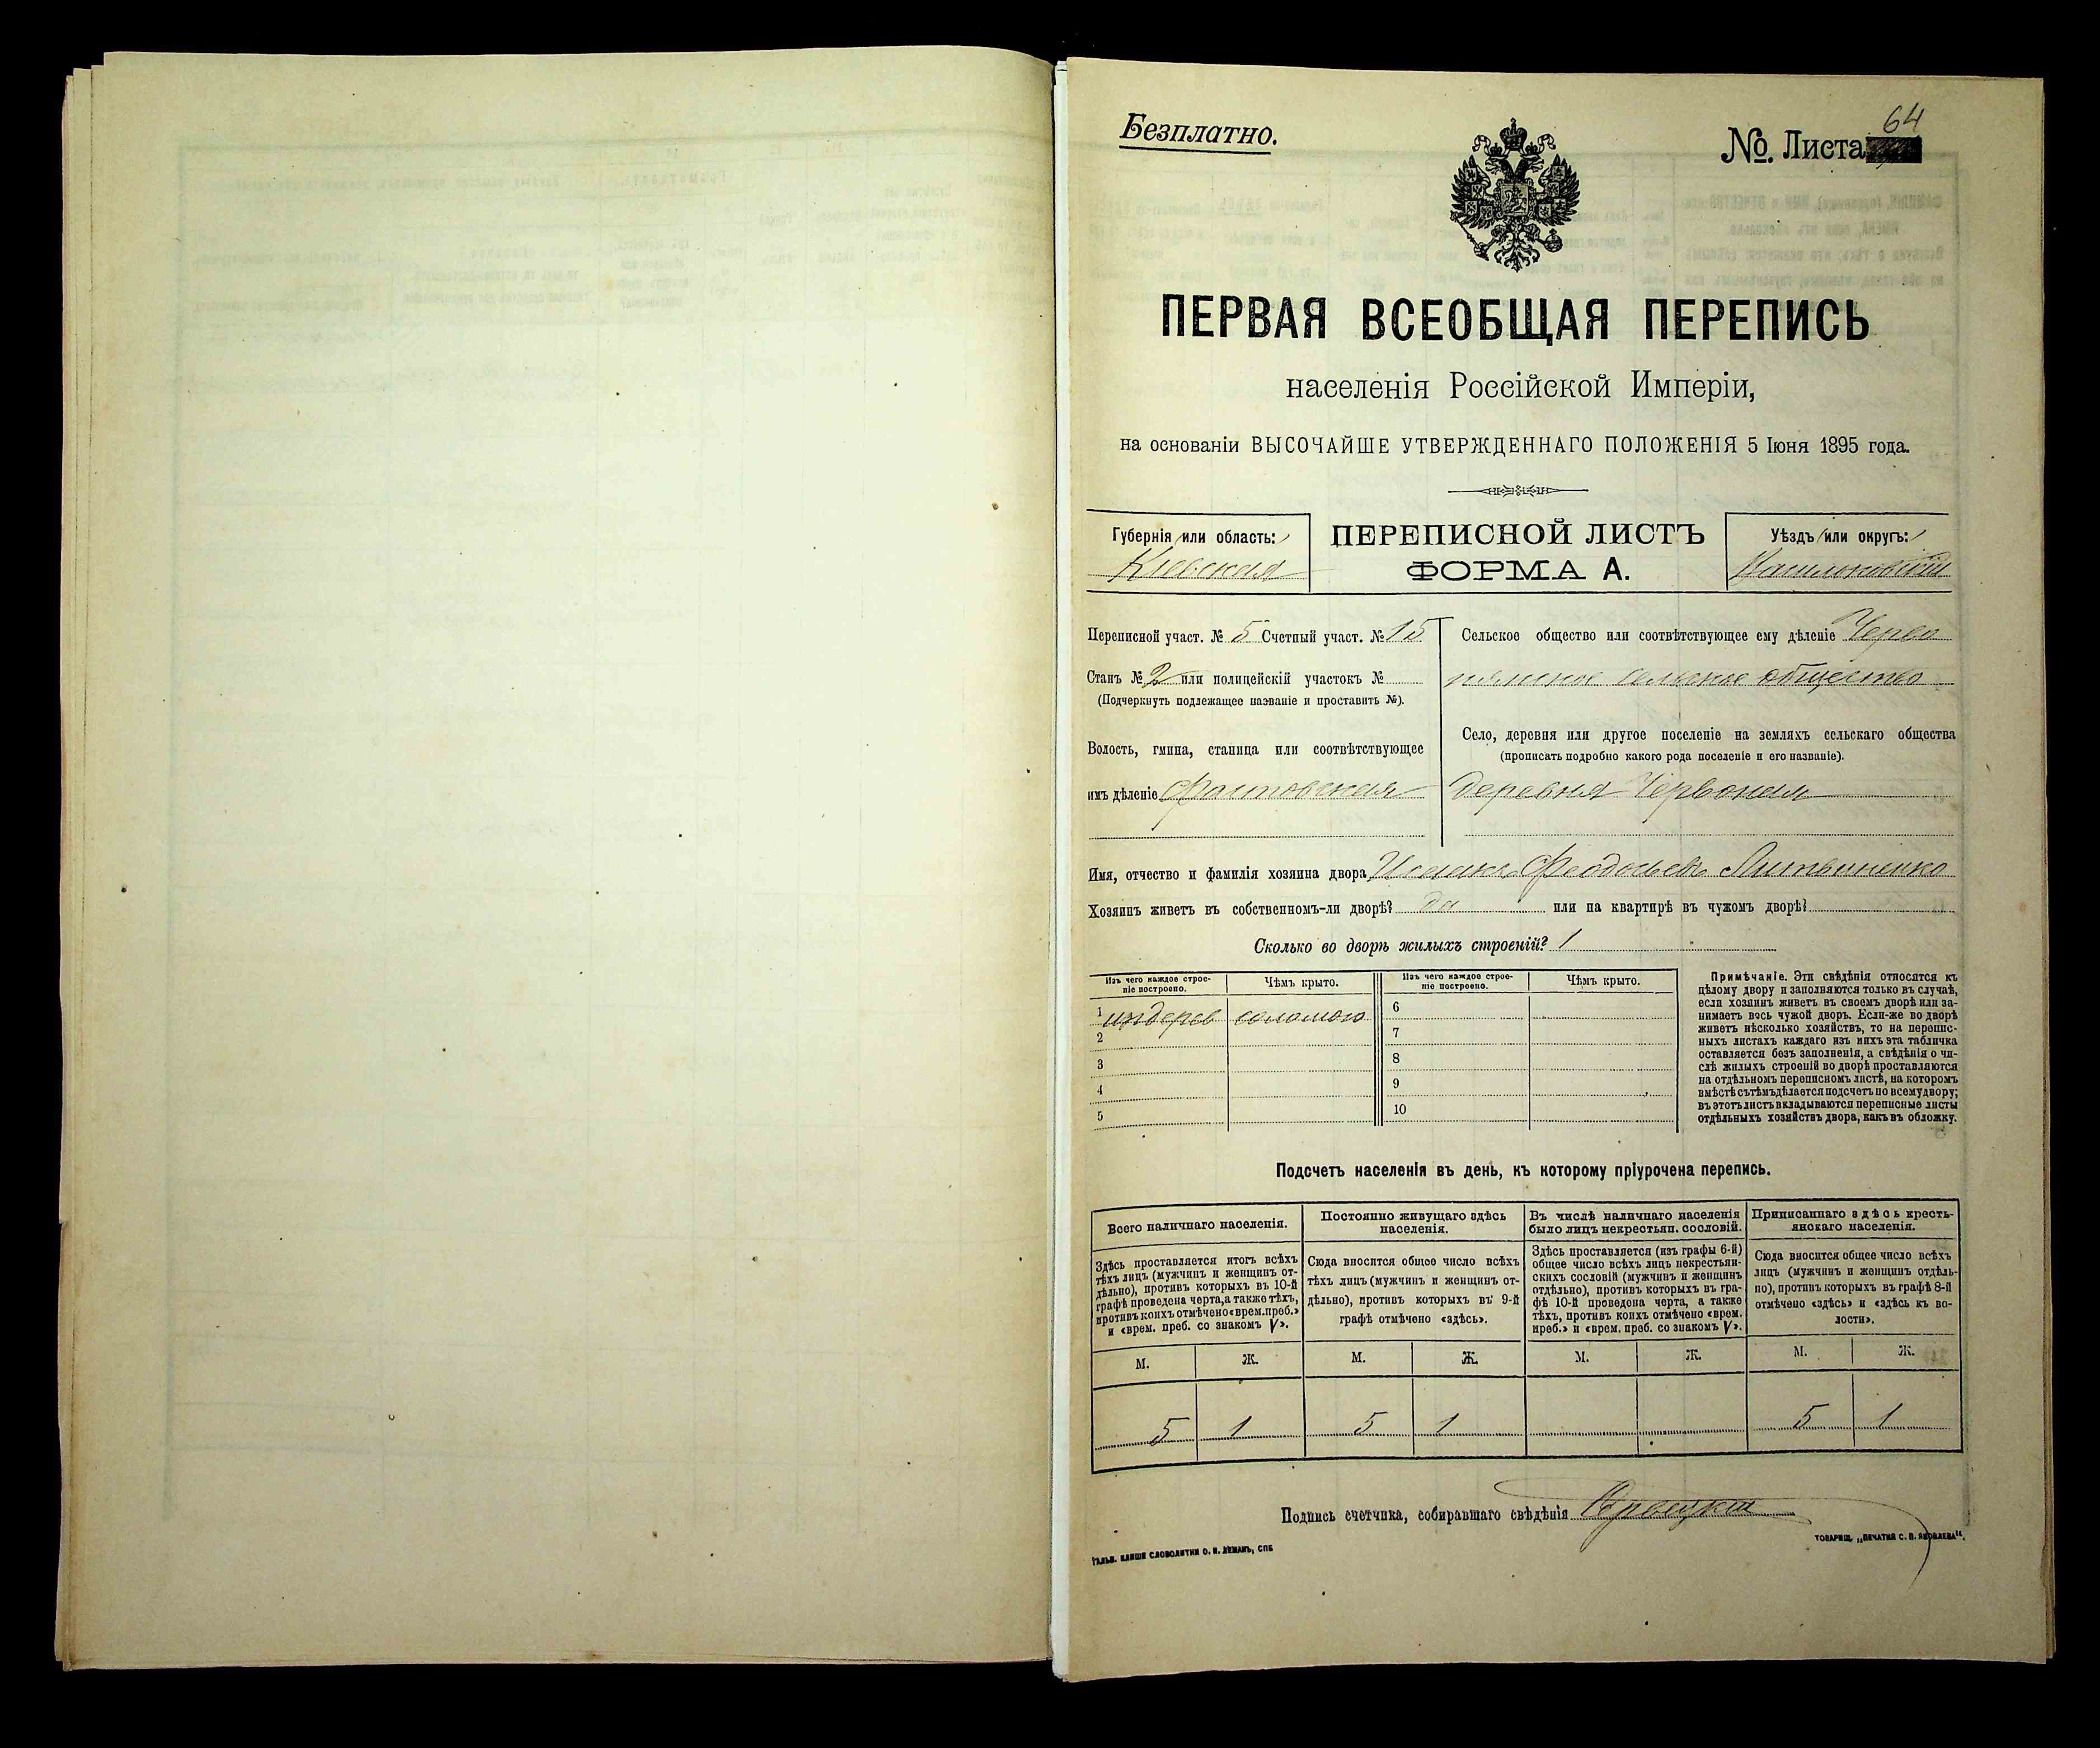 Безплатно.
№. Листа 64
ПЕРВАЯ ВСЕОБЩАЯ ПЕРЕПИСЬ
населенія Россійской Имперіи,
на основаніи ВЫСОЧАЙШЕ УТВЕРЖДЕННАГО ПОЛОЖЕНІЯ 5 Іюня 1895 года.
Губернія или область:
Кіевская
ПЕРЕПИСНОЙ ЛИСТЪ
ФОРМА А.
Уѣздъ или округъ:
Васильковскій
Переписной участ. № 5 Счетный участ. № 15
Станъ № 2 или полицейскій участокъ №
(Подчеркнуть подлежащее названіе и проставить №).
Волость, гмина, станица или соотвѣтствующее
имъ дѣленіе Фастовская
Сельское общество или соотвѣтствующее ему дѣленіе Черво
нянское сельское общество
Село, деревня или другое поселеніе на земляхъ сельскаго общества
(прописать подробно какого рода поселеніе и его названіе).
деревня Червоная
Имя, отчество и фамилія хозяина двора Литвиненко
Хозяинъ живетъ въ собственномъ-ли дворѣ? да или на квартирѣ въ чужомъ дворѣ?
Сколько во дворѣ жилыхъ строеній? 1
Изъ чего каждое строе-
ніе построено.
Чѣмъ крыто.
1 издерев соломою
2
3
4
5
Изъ чего каждое строе-
ніе построено.
Чѣмъ крыто.
6
7
8
9
10
Примѣчаніе. Эти свѣдѣнія относятся къ
цѣлому двору и заполняются только въ случаѣ,
если хозяинъ живетъ въ своемъ дворѣ или за-
нимаетъ весь чужой дворъ. Если-же во дворѣ
живетъ нѣсколько хозяйствъ, то на перепис-
ныхъ листахъ каждаго изъ нихъ эта табличка
оставляется безъ заполненія, а свѣдѣнія о чи-
слѣ жилыхъ строеній во дворѣ проставляются
на отдѣльномъ переписномъ листѣ, на которомъ
вмѣстѣ съ тѣмъ дѣлается подсчетъ по всему двору;
въ этотъ листъ вкладываются переписные листы
отдѣльныхъ хозяйствъ двора, какъ въ обложку.
Подсчетъ населенія въ день, къ которому пріурочена перепись.
Всего наличнаго населенія.
Здѣсь проставляется итогъ всѣхъ
тѣхъ лицъ (мужчинъ и женщинъ от-
дѣльно), противъ которыхъ въ 10-й
графѣ проведена черта, а также тѣхъ,
противъ коихъ отмѣчено «врем. преб.»
и «врем. преб. со знакомъ V».
М. Ж.
5 1
Постоянно живущаго здѣсь
населенія.
Сюда вносится общее число всѣхъ
тѣхъ лицъ (мужчинъ и женщинъ от-
дѣльно), противъ которыхъ въ 9-й
графѣ отмѣчено «здѣсь».
М. Ж.
5 1
Въ числѣ наличнаго населенія
было лицъ некрестьян. сословій.
Здѣсь проставляется (изъ графы 6-й)
общее число всѣхъ лицъ некрестьян-
скихъ сословій (мужчинъ и женщинъ
отдѣльно), противъ которыхъ въ гра-
фѣ 10-й проведена черта, а также
тѣхъ, противъ коихъ отмѣчено «врем.
преб.» и «врем. преб. со знакомъ V».
М. Ж.
Приписаннаго здѣсь кресть-
янскаго населенія.
Сюда вносится общее число всѣхъ
лицъ (мужчинъ и женщинъ отдѣль-
но), противъ которыхъ въ графѣ 8-й
отмѣчено «здѣсь» и «здѣсь къ во-
лости».
М. Ж.
5 1
Подпись счетчика, собиравшаго свѣдѣнія
ГАЛЬВ. КЛИШЕ СЛОВОЛИТНИ О. И. ЛЕМАНЪ, СПБ
ТОВАРИЩ. „ПЕЧАТНЯ С. П. ЯКОВЛЕВА".